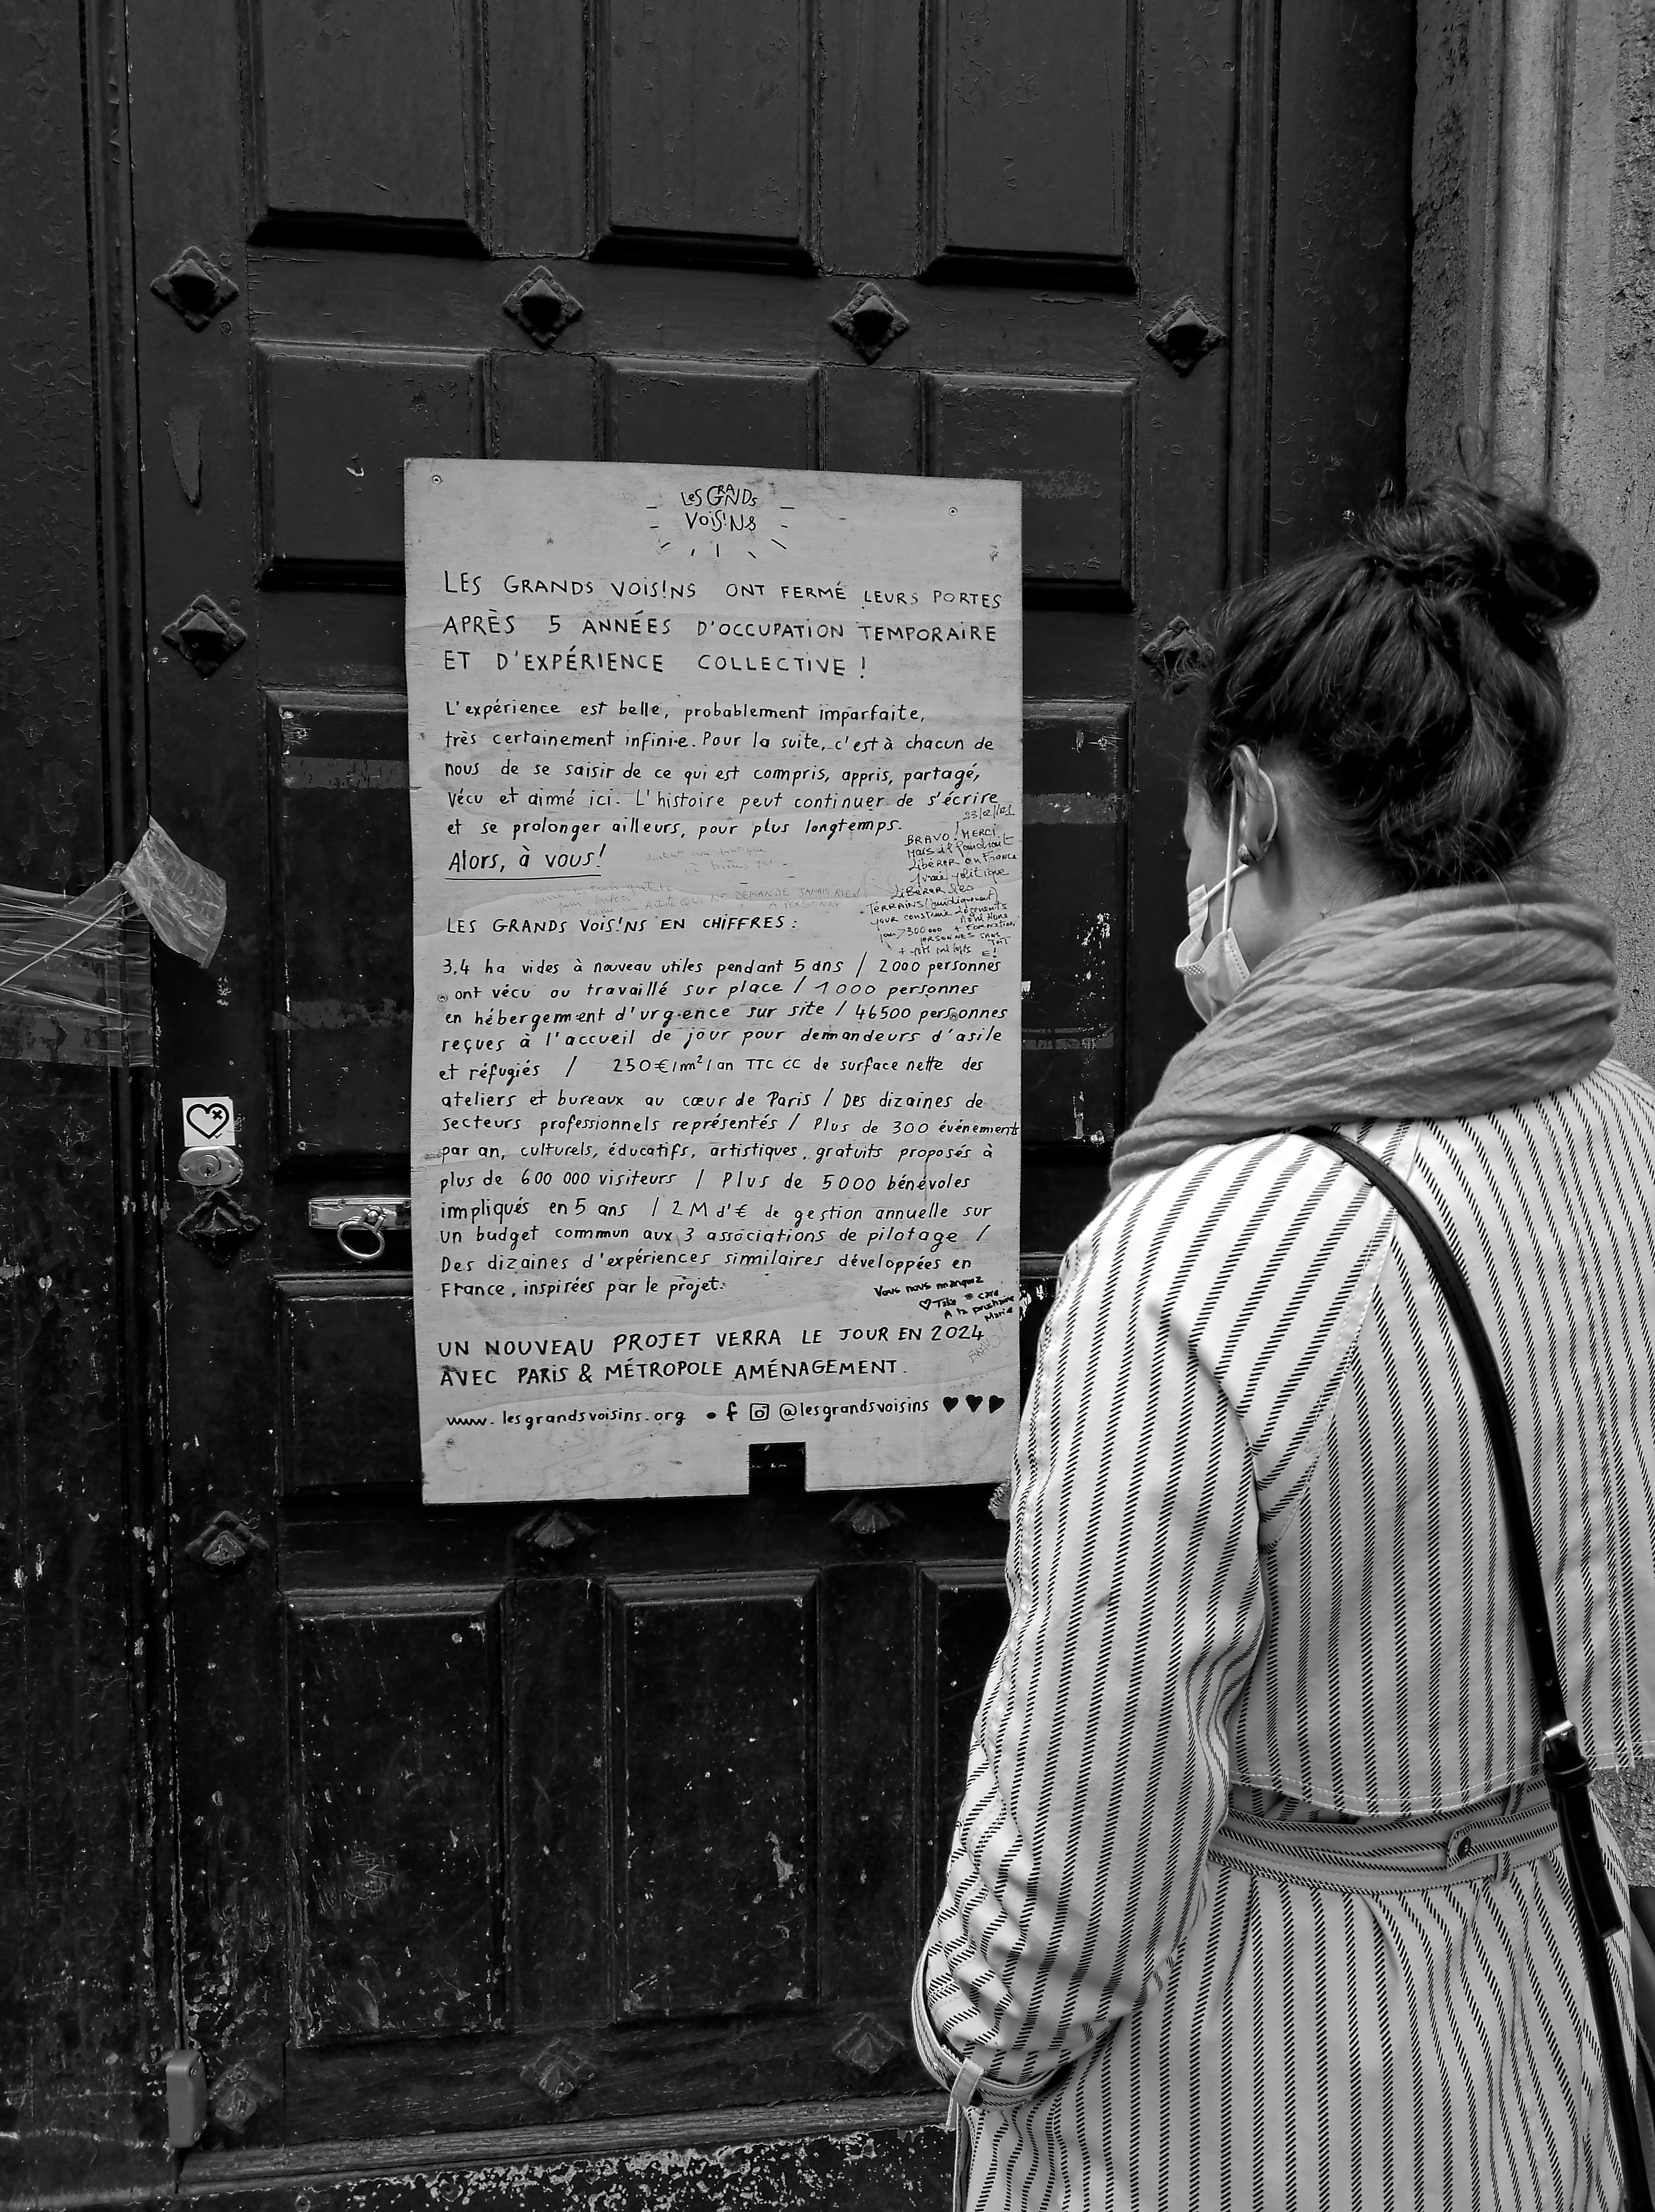 LES GRANDS
VOIS!NS
LES GRANDS VOIS!NS ONT FERMÉ LEURS PORTES
APRÈS 5 ANNÉES D'OCCUPATION TEMPORAIRE
ET D'EXPÉRIENCE COLLECTIVE !
L'expérience est belle, probablement imparfaite,
très certainement infini·e. Pour la suite, c'est à chacun de
nous de se saisir de ce qui est compris, appris, partagé,
vécu et aimé ici. L'histoire peut continuer de s'écrire
et se prolonger ailleurs, pour plus longtemps.
Alors, à vous!
BRAVO! MERCI
Mais il faudrait
Libérer en France
vraie politique
Libérer les
TERRAINS (juridiquement)
pour construire
QUI NE DEMANDE JAMAIS RIEN
À PERSONNE
LES GRANDS VOIS!NS EN CHIFFRES :
3,4 ha vides à nouveau utiles pendant 5 ans / 2000 personnes
ont vécu ou travaillé sur place / 1000 personnes
en hébergement d'urgence sur site / 46500 personnes
reçues à l'accueil de jour pour demandeurs d'asile
et réfugiés / 250€/m²/an TTC CC de surface nette des
ateliers et bureaux au cœur de Paris / Des dizaines de
secteurs professionnels représentés / Plus de 300 événements
par an, culturels, éducatifs, artistiques, gratuits proposés à
plus de 600 000 visiteurs / Plus de 5000 bénévoles
impliqués en 5 ans / 2M d'€ de gestion annuelle sur
un budget commun aux 3 associations de pilotage /
Des dizaines d'expériences similaires développées en
France, inspirées par le projet.
Vous nous manquez
♡ Take care
A la prochaine
Marie
UN NOUVEAU PROJET VERRA LE JOUR EN 2024
AVEC PARIS & MÉTROPOLE AMÉNAGEMENT.
BRAVO
www.lesgrandsvoisins.org • f @lesgrandsvoisins ♥♥♥